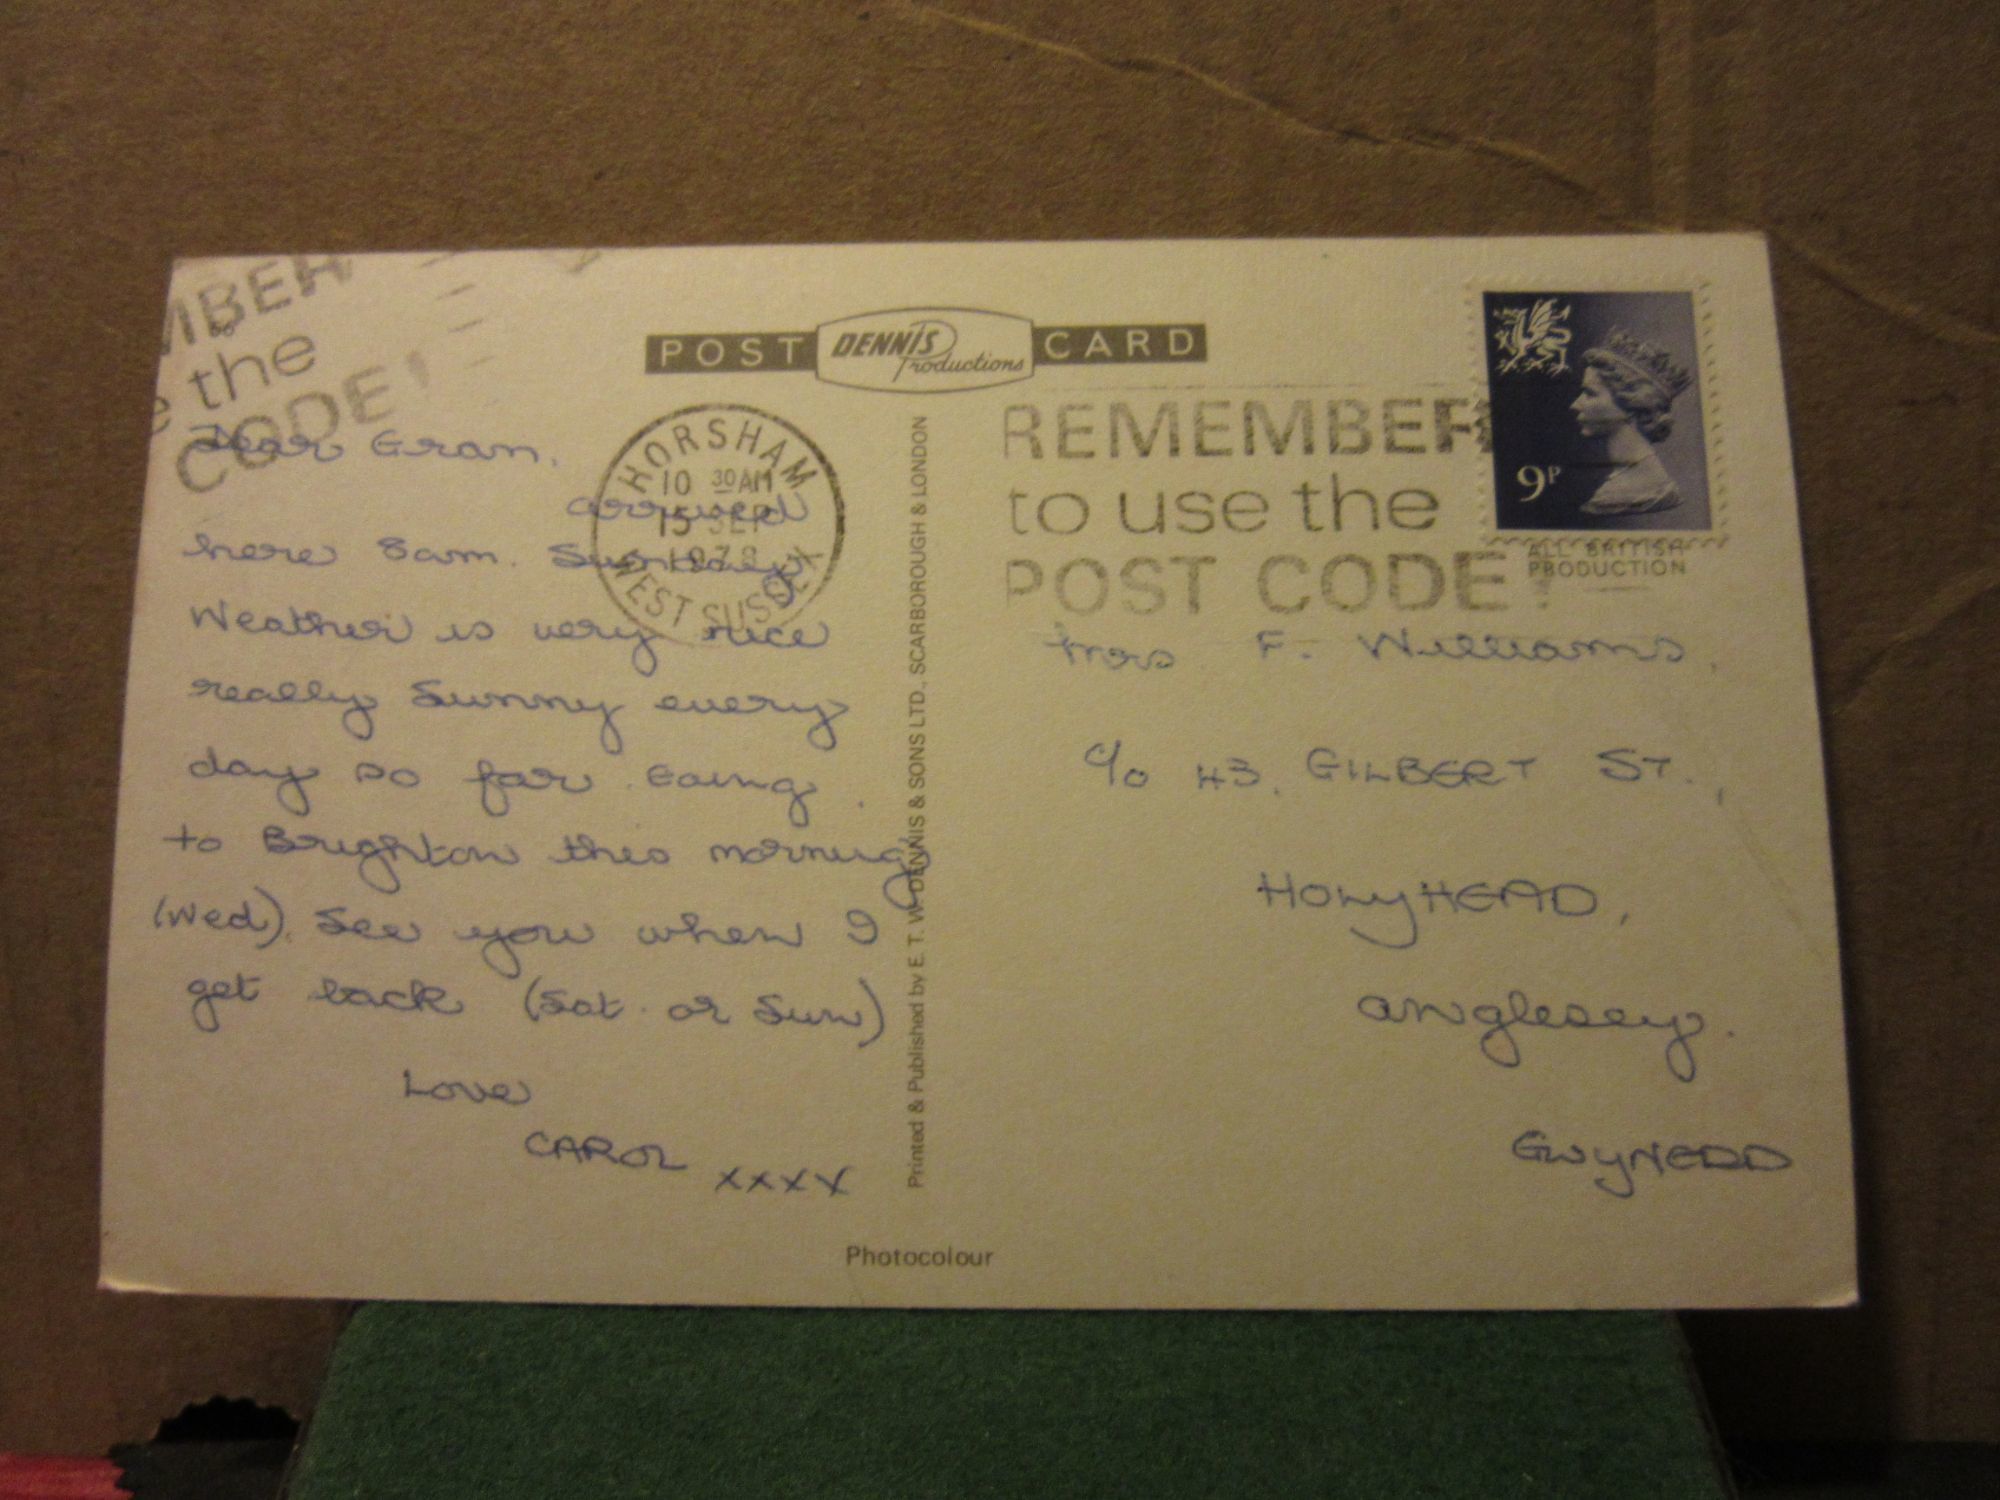 POST DENNIS Productions CARD
MBER
the
CODE!
HORSHAM
10 30 AM
15 SEP
WEST SUSSEX
REMEMBER
to use the
POST CODE!
9P
ALL BRITISH
PRODUCTION
Dear Gran,
arrived
here 8am. Sunday
Weather is very nice
really Sunny every
day so far. Going
to Brighton this morning
(Wed). See you when I
get back (Sat. or Sun)
Love
CAROL xxxx
Printed & Published by E. T. W. DENNIS & SONS LTD., SCARBOROUGH & LONDON
Mrs F. Williams,
c/o 43, GILBERT ST.,
HOLyHEAD,
anglesey.
GWyNEDD
Photocolour